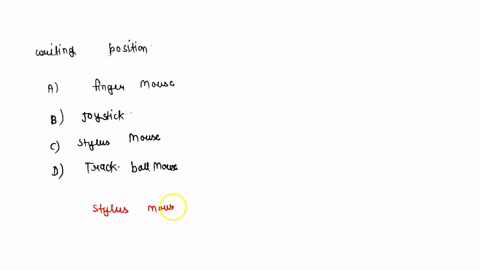 writing position.
A) finger mouse
B) Joystick.
C) Stylus Mouse
D) Track. ball Mouse
Stylus mous